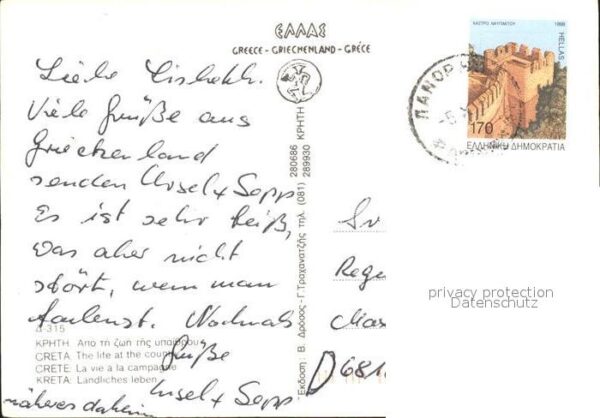 ΕΛΛΑΣ
GREECE - GRIECHENLAND - GRÈCE
Liebe Lisbeth.
Viele Grüße aus
Griechenland
senden Ursel + Sepp
Es ist sehr heiß,
was aber nicht
stört, wenn man
faulenzt. Nochmals
Grüße
Ursel + Sepp
näheres daheim
Δ-315
ΚΡΗΤΗ. Από τή ζωη τής υπαίθρου
CRETA The life at the count
CRÈTE: La vie a la campagne
KRETA: Landliches leben
Έκδοση: Β. Δρόσος-Γ.Τραχανατζής τηλ. (081) 280686 289930 ΚΡΗΤΗ
ΚΑΣΤΡΟ ΝΑΥΠΑΚΤΟΥ 1998
HELLAS
170
ΕΛΛΗΝΙΚΗ ΔΗΜΟΚΡΑΤΙΑ
ΠΑΝΟΡ
Regu
D 681
privacy protection
Datenschutz